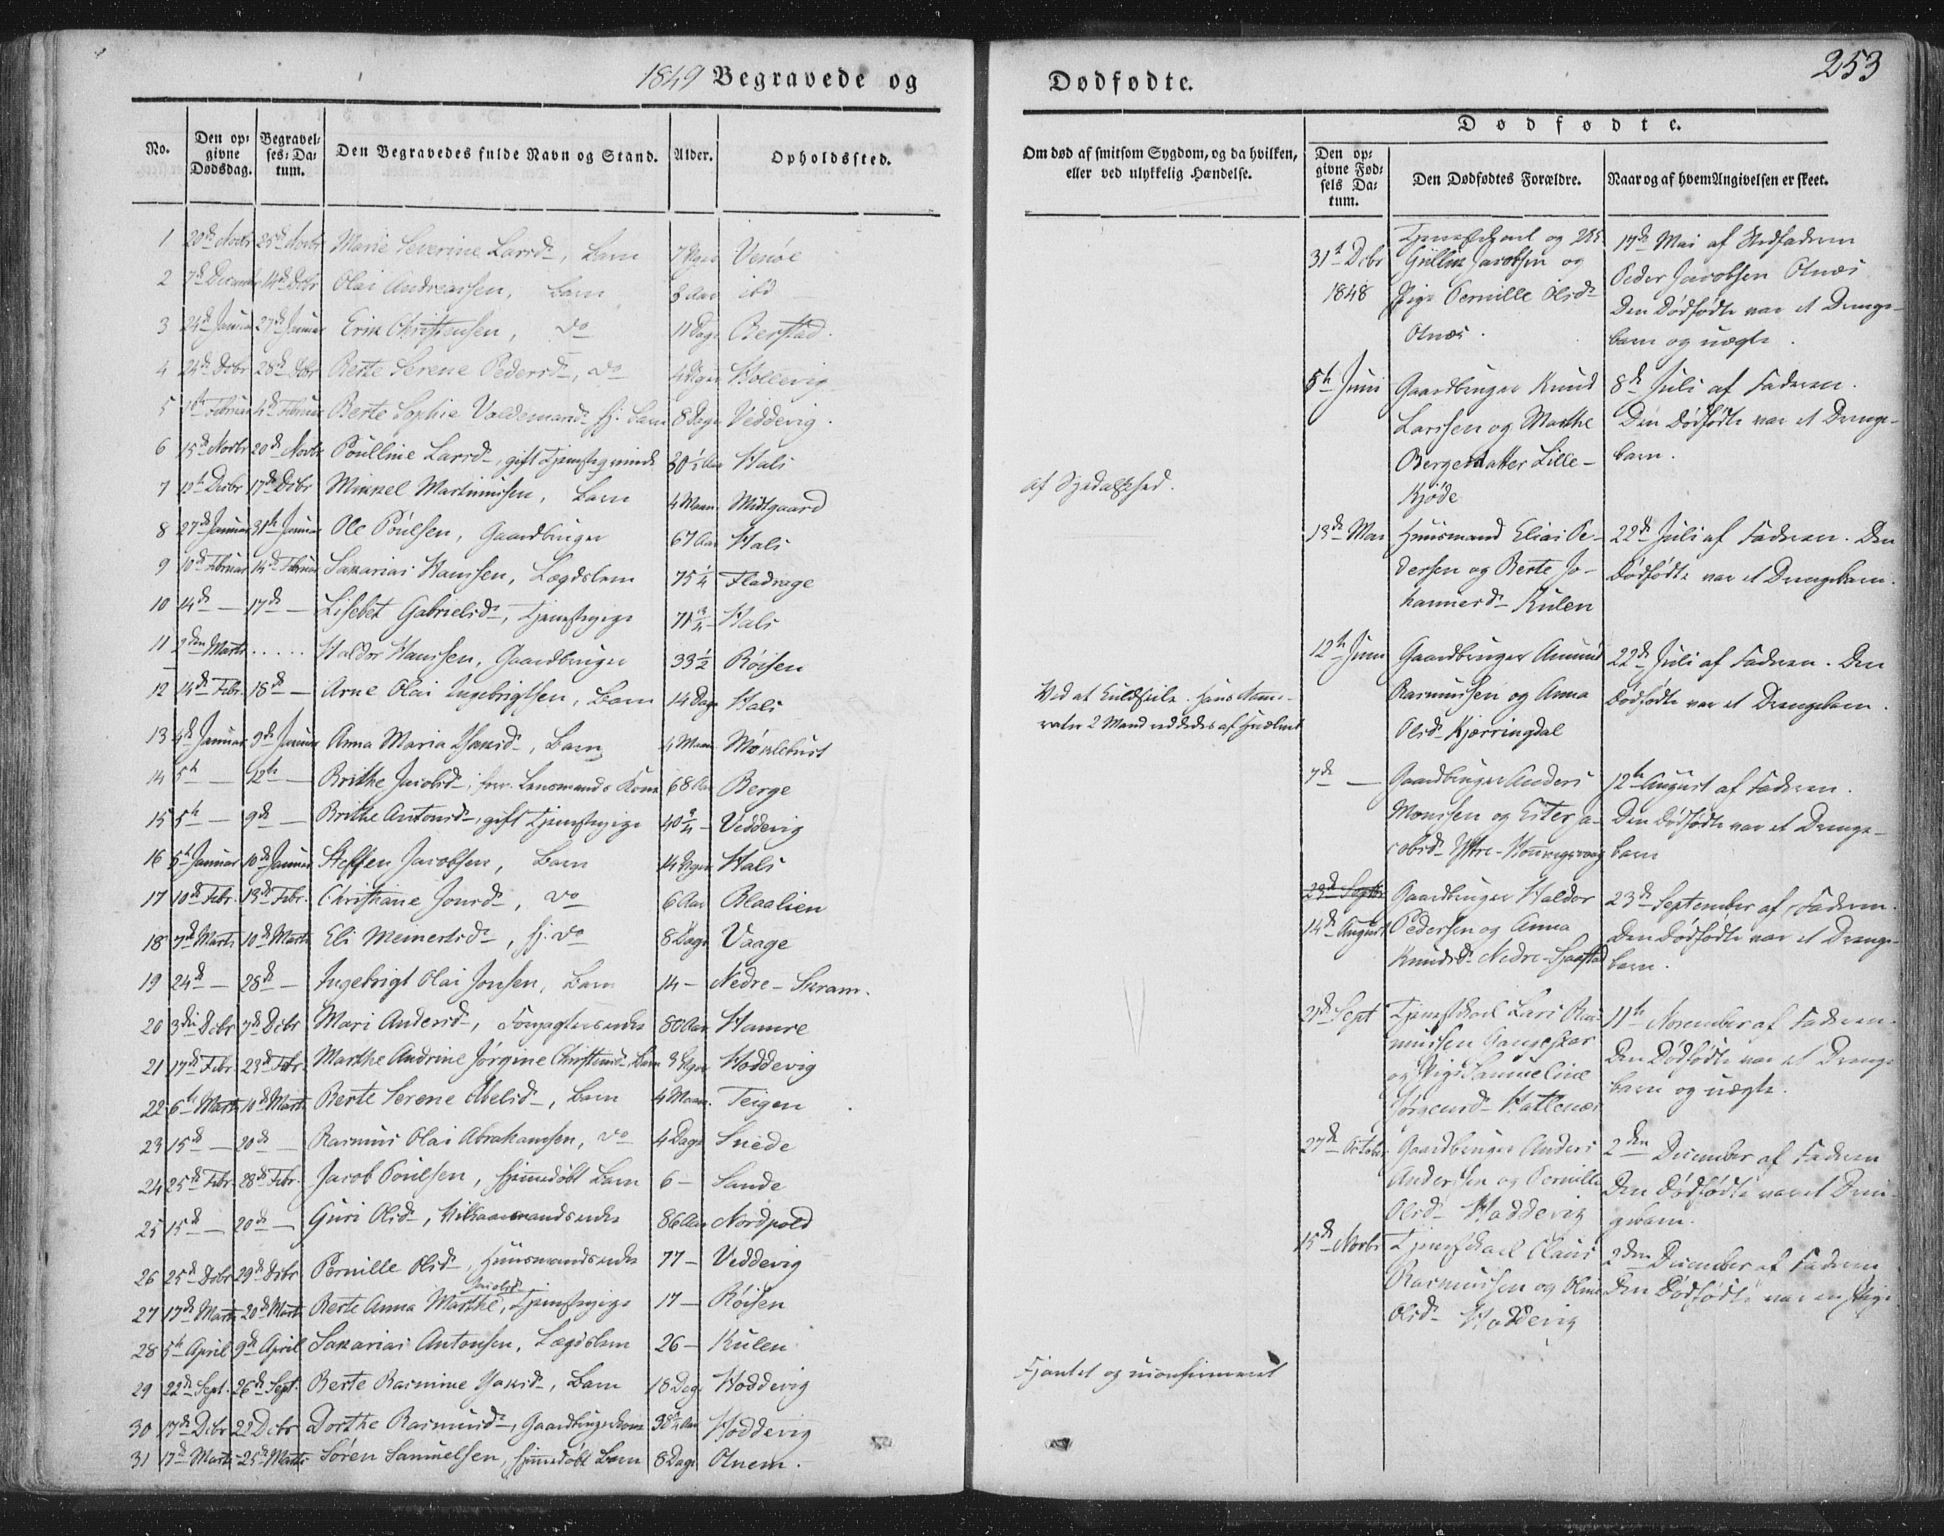 1849 Begravede og
No. Den opgivne Dødsdag. Begravelses-Datum. Den Begravedes fulde Navn og Stand. Alder. Opholdssted.
1 20de Novbr 25de Novbr Marie Severine Larsd., Barn 7 Venøe
2 7de 14de Dcbr Olai Andreassen, Barn 3 Aar ibd
3 24de Januar 27de Januar Erik Christensen, do 11 Dage Berstad.
4 24de Dcbr 28de Dcbr Berte Serene Pedersd., do 4 Hollevig
5 1ste Februar 4de Februar Berte Sophie Valdemarsd. hj. Barn 8 Dage Veddevig.
6 15de Novbr 20de Novbr Poulline Larsd., gift Tjenestqvinde 30½ Aar Hals
7 12te Decbr 17de Dcbr Mikkel Martinussen, Barn 4 Maan. Midtgaard
8 27de Januar 31te Januar Ole Poulsen, Gaardbruger 67 Aar Hals
9 10de Februar 14de Februar Sakarias Hanssen, Lægdslem 75¼ Fladrage
10 14de — 17de — Lisebet Gabrielsd., Tjenestpige 71¾ Hals
11 2den Marts ..... Haldor Hanssen, Gaardbruger 33½ Røisen
12 14de Febr. 18de — Arne Olai Ingebrigtsen, Barn 14 Dage Hals
13 4de Januar 9de Januar Anna Maria Isaksd., Barn 4 Maan Møklebust
14 5te — 12te — Brithe Jacobsd., forr. Lensmands Kone 68 Aar Berge
15 5te — 9de — Brithe Antonsd., gift Tjenestpige 40 Veddevig
16 5te Januar 10de Januar Steffen Jacobsen, Barn 14 Hals
17 10de Febr. 13de Febr. Christiane Jonsd., do 6 Aar Blaalien
18 7de Marts 10de Marts Eli Meinertsd., hj. do 8 Dage Vaage
19 24de — 28de — Ingebrigt Olai Jonsen, Barn 14 — Nedre-Skram.
20 3die Dcbr 7de Dcbr Mari Andersd., 80 Aar Hamre
21 17de Febr 23de Febr. Marthe Andrine Jørgine Christensd. Barn 3 Hoddevig
22 6te Marts 10de Marts Berte Serene Abelsd., Barn 4 Maan. Teigen
23 15de — 20de — Rasmus Olai Abrahamsen, do 4 Dage Sniede
24 25de Febr. 28de Febr. Jacob Poulsen, hjemmedøbt Barn 6 — Sande
25 15de — 20de — Guri Olsd., 86 Aar Nordpold
26 25de Dcbr 29de Dcbr. Pernille Olsd., Huusmandsenke 77 — Veddevig
27 17de Marts 20de Marts Berte Anna Marthe Jacobsd., Tjenestpige 17 — Røisen
28 5te April 9de April Sakarias Antonsen, Lægdslem 26 — Kulen
29 22de Sept. 26de Sept. Berte Rasmine Isaksd., Barn 18 Dage Hoddevig
30 17de Dcbr 22 Dcbr Dorthe Rasmusd., Gaardbrugerkone Hoddevig
31 17de Marts 25de Marts Søren Samuelsen, hjemmedøbt Barn 8 Dage Otnem.
253
Dødfødte.
Om død af smitsom Sygdom, og da hvilken,
eller ved ulykkelig Hændelse.
af Spedalskhed.
Ved at
2 Mand reddedes af
Fjantet og uconfirmeret
Dødfødte.
Den opgivne Fødsels Datum. Den Dødfødtes Forældre. Naar og af hvem Angivelsen er skeet.
31te Dcbr 1848
Tjenestkarl og
Jacobsen og
Pige Pernille Olsd.
Otnæs.
17de Mai af
Peder Jacobsen Otnæs
Den Dødfødte var et Drenge-
barn og uægte.
5te Juni
Gaardbruger Knud
Larssen og Marthe
Bergesdatter Lille-
Kjøde
8de Juli af Faderen.
Den Dødfødte var et Drenge-
barn.
13de Mai
Huusmand Elias Pe-
dersen og Berte Jo-
hannesd. Kulen
22de Juli af Faderen. Den
Dødfødte var et Drengebarn.
12te Juni
Gaardbruger Amund
Rasmussen og Anna
Olsd. Kjærringdal
22de Juli af Faderen. Den
Dødfødte var et Drengebarn.
7de —
Gaardbruger Anders
Monssen og Ester Ja-
cobsd. Ytre-
12te August af Faderen.
Den Dødfødte var et Drenge-
barn
23de Septbr
14de August
Gaardbruger Haldor
Pedersen og Anna
Knudsd. Nedre-
23de September af Faderen.
Den Dødfødte var et Drenge-
barn.
Sept
Tjenestkarl Lars Ras-
mussen
og Pige Samueline
Jørgensd. Hatlenæs
11te November af Faderen.
Den Dødfødte var et Drenge-
barn og uægte.
27de Octobr
Gaardbruger Anders
Andersen og Pernille
Olsd. Hoddevig
2den December af Faderen
Den Dødfødte var et Dren-
gebarn.
15de Novbr
Tjenestkarl Claus
Rasmussen og
Olsd. Hoddevig
2den December af Faderen
Den Dødfødte var en Pige